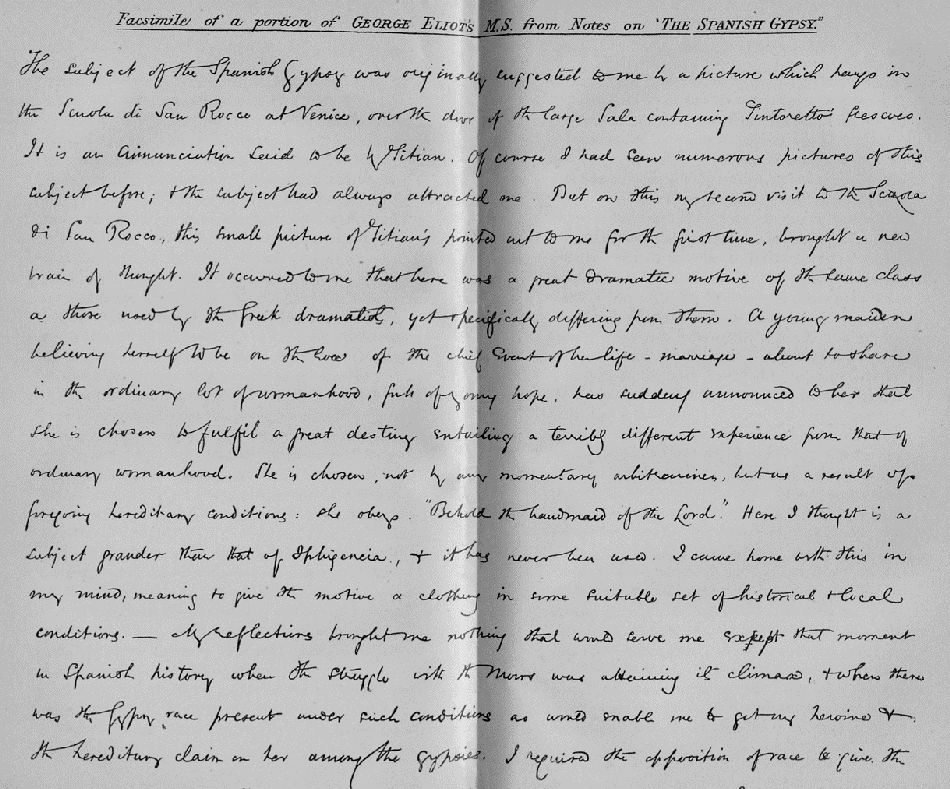 Facsimile of a portion of GEORGE ELIOT'S M.S. from Notes on "THE SPANISH GYPSY."
The subject of the Spanish Gypsy was originally suggested to me by a picture which hangs in
the Scuola di San Rocco at Venice, over the door of the large Sala containing Tintoretto's frescoes.
It is an Annunciation said to be by Titian. Of course I had seen numerous pictures of this
subject before; & the subject had always attracted me. But on this my second visit to the Scuola
di San Rocco, this small picture of Titian's pointed out to me for the first time, brought a new
train of thought. It occurred to me that here was a great dramatic motive of the same class
as those used by the Greek dramatists, yet specifically differing from them. A young maiden
believing herself to be on the eve of the chief event of her life - marriage - about to share
in the ordinary lot of womanhood, full of young hope, has suddenly announced to her that
she is chosen to fulfil a great destiny entailing a terribly different experience from that of
ordinary womanhood. She is chosen, not by any momentary arbitrariness, but as a result of
foregoing hereditary conditions: she obeys. "Behold the handmaid of the Lord." Here I thought is a
subject grander than that of Iphigencia, & it has never been used. I came home with this in
my mind, meaning to give the motive a clothing in some suitable set of historical & local
conditions. — My reflections brought me nothing that would serve me except that moment
in Spanish history when the struggle with the Moors was attaining its climax, & when there
was the Gypsy race present under such conditions as would enable me to get my heroine &
the hereditary claim on her among the gypsies. I required the opposition of race to give the